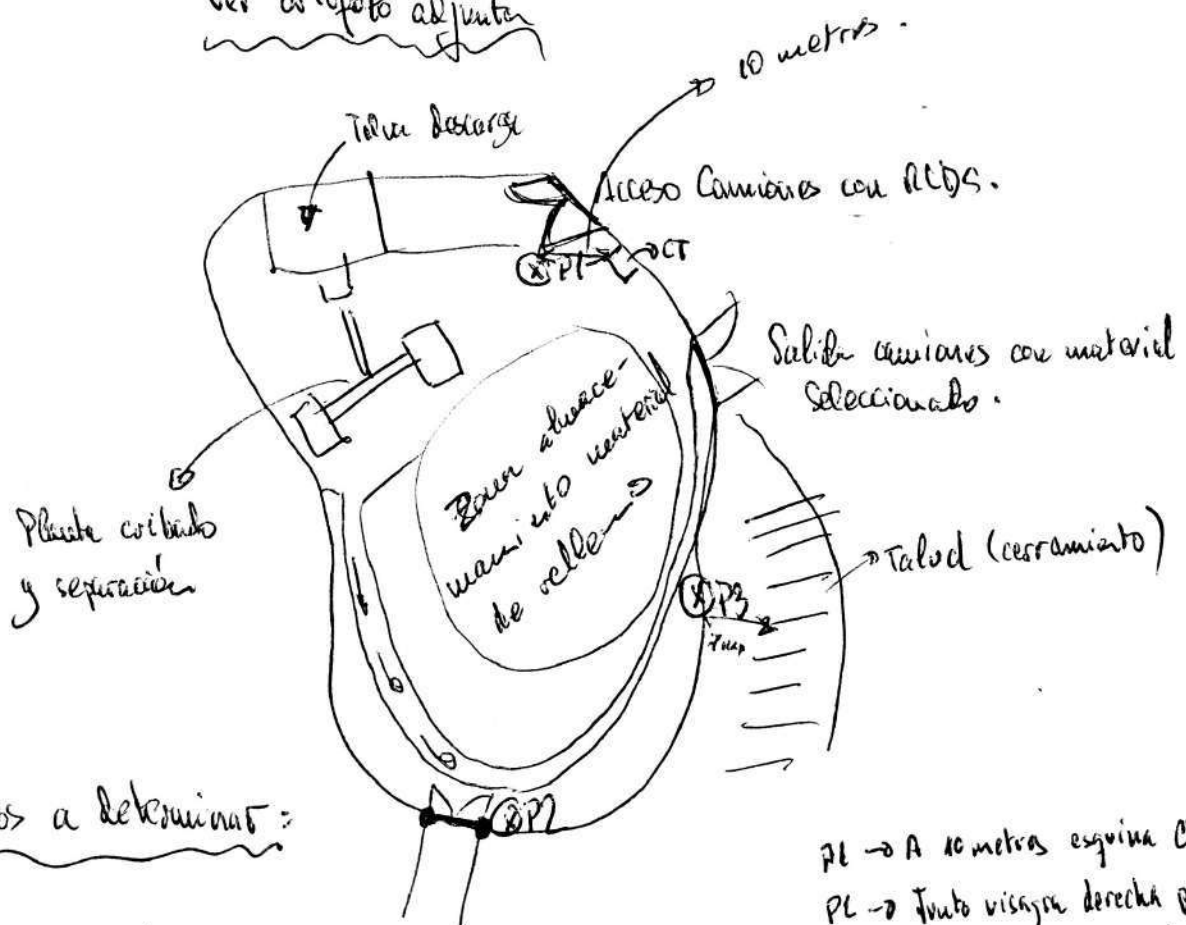 Ver croquis adjunto
10 metros.
Tolva Descarga
Acceso Camiones con RCDS.
P1
CT
Salida camiones con material
seleccionado.
Zona almace-
namiento material
de relleno
Planta cribado
y separación
Talud (cerramiento)
P3
P2
os a determinar:
P1 → A 10 metros esquina C
P2 → Junto visagra derecha P